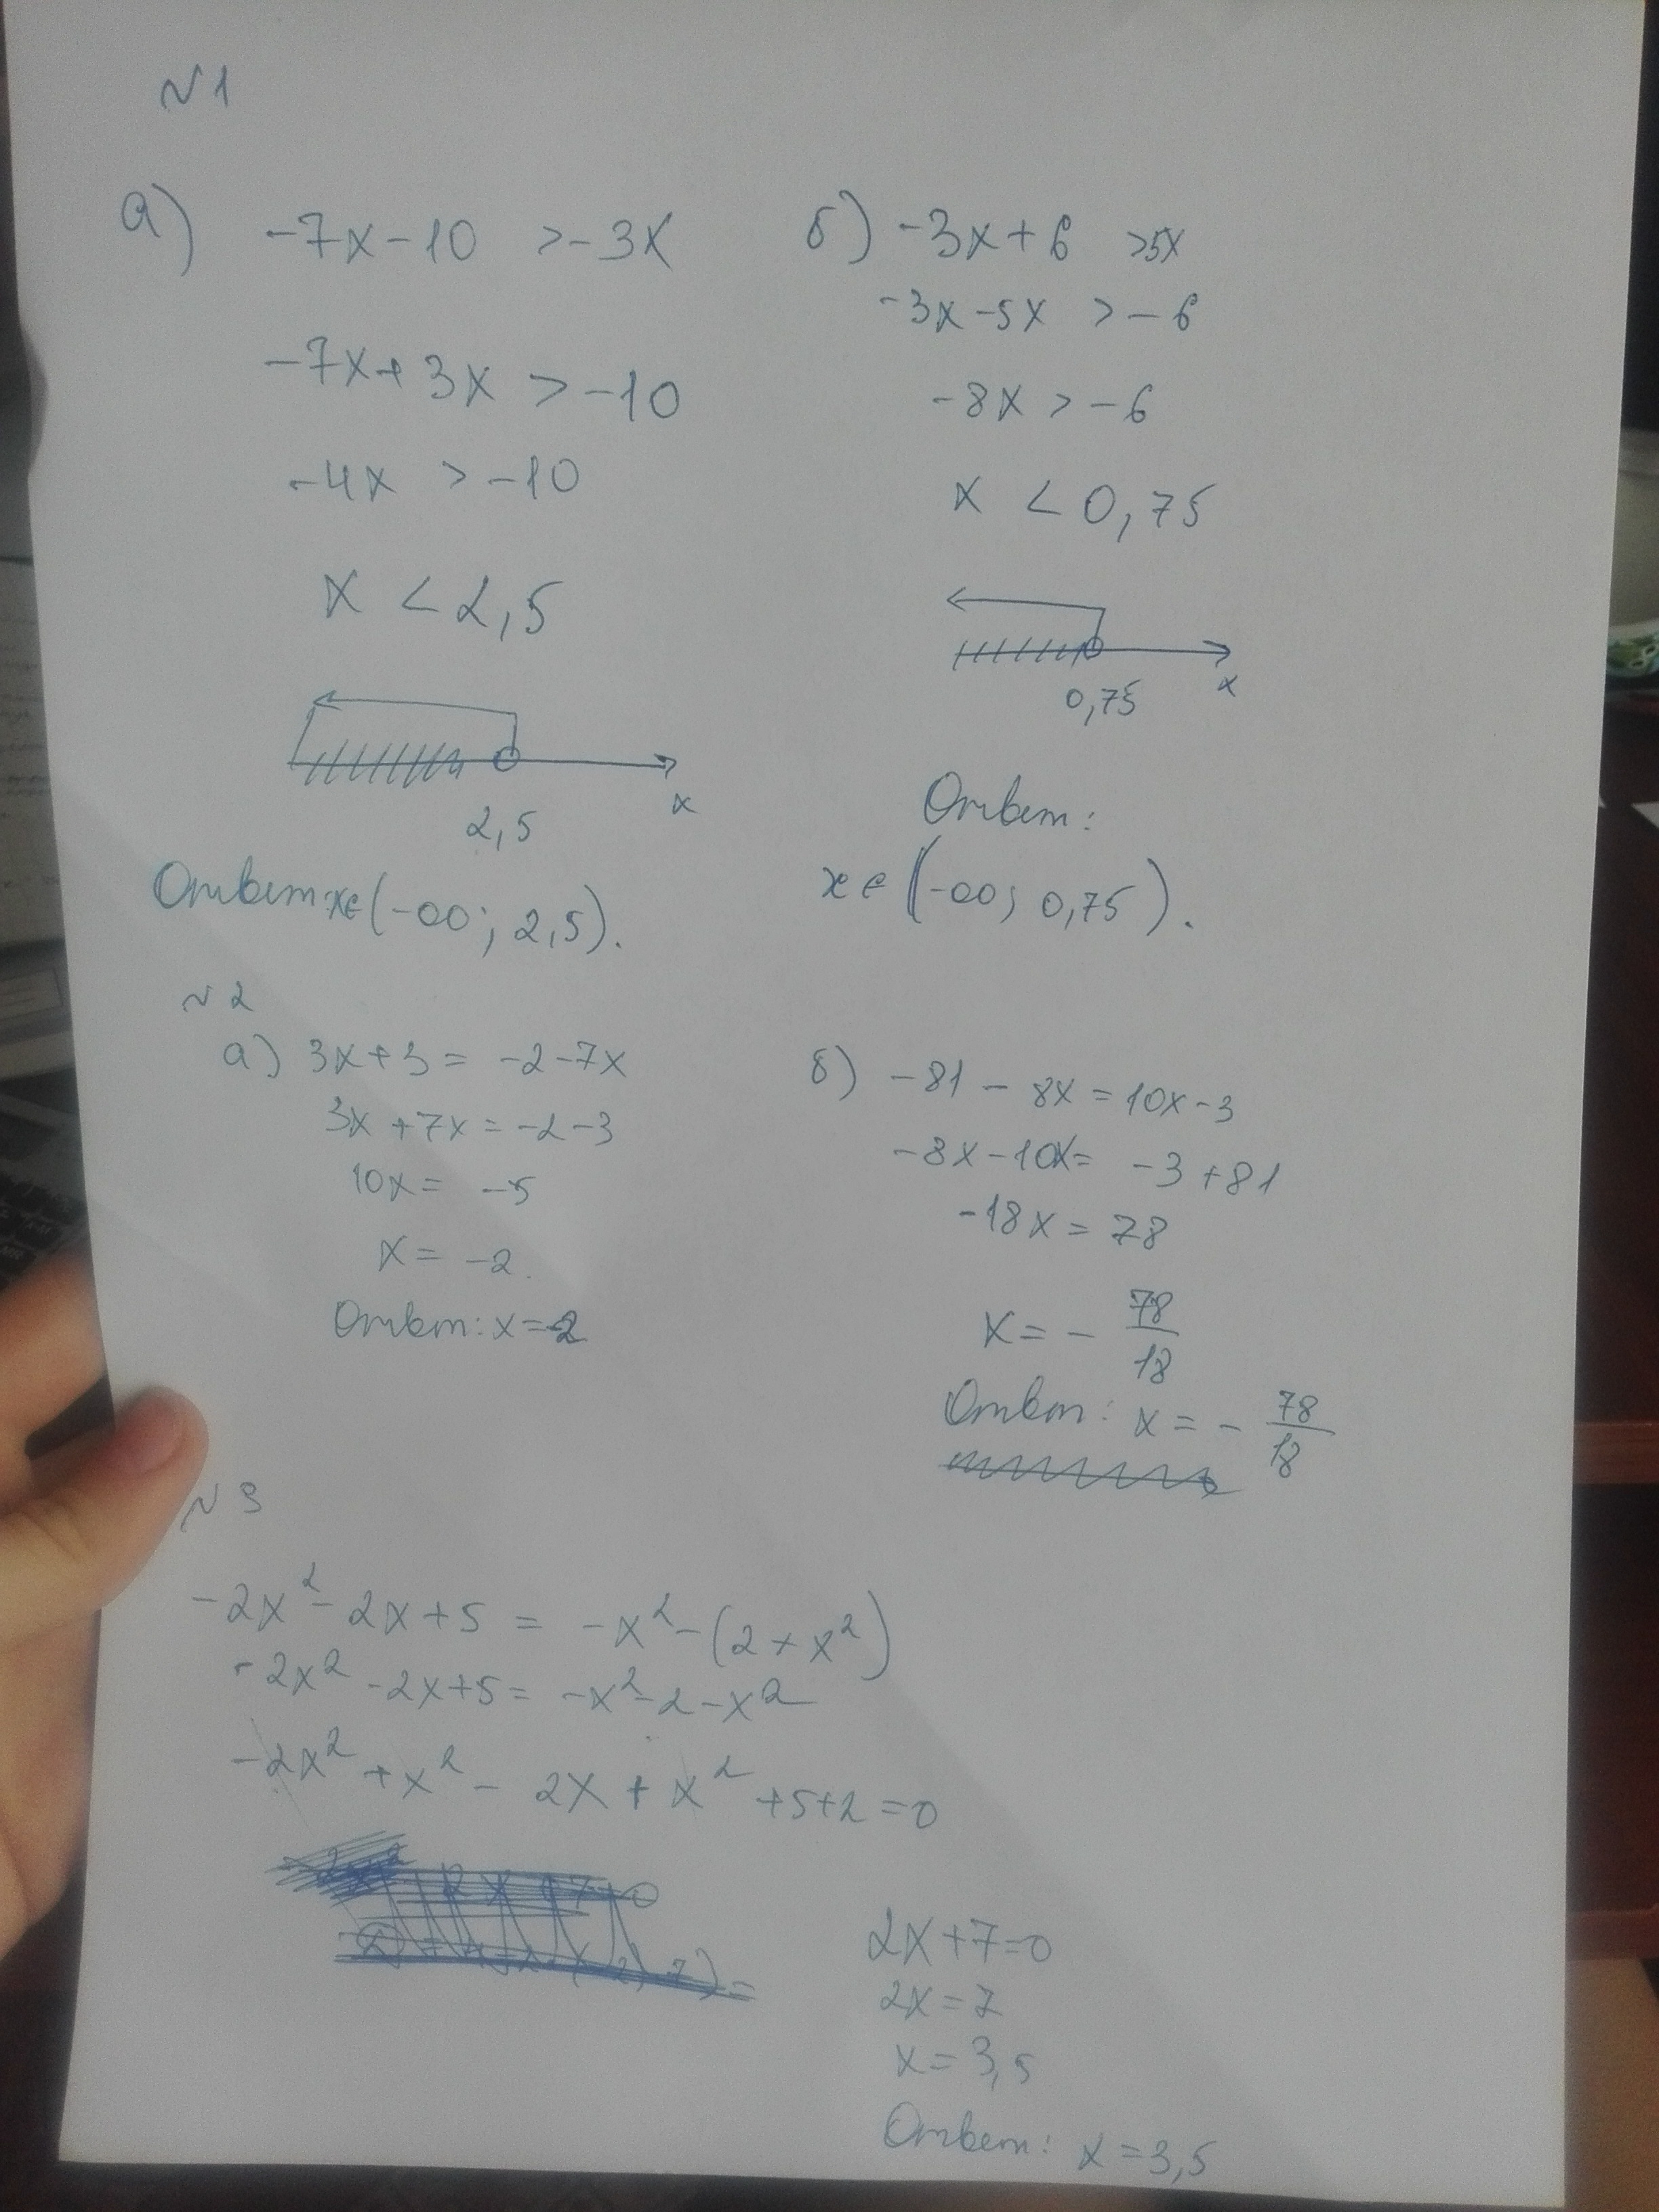 №1
а) -7x-10 >-3x
-7x+3x >-10
-4x >-10
x <2,5
2,5
x
Ответ: x∈(-∞; 2,5).
б) -3x+6 >5x
-3x-5x >-6
-8x >-6
x <0,75
0,75
x
Ответ:
x∈(-∞; 0,75).
№2
а) 3x+3= -2-7x
3x+7x=-2-3
10x= -5
x= -2.
Ответ: x=-2
б) -81 - 8x=10x-3
-8x-10x= -3+81
-18x=78
x= - 78/18
Ответ: x= - 78/18
№3
-2x²-2x+5 = -x²-(2+x²)
-2x²-2x+5= -x²-2-x²
-2x²+x²- 2x+x²+5+2=0
2x+7=0
2x=7
x=3,5
Ответ: x=3,5